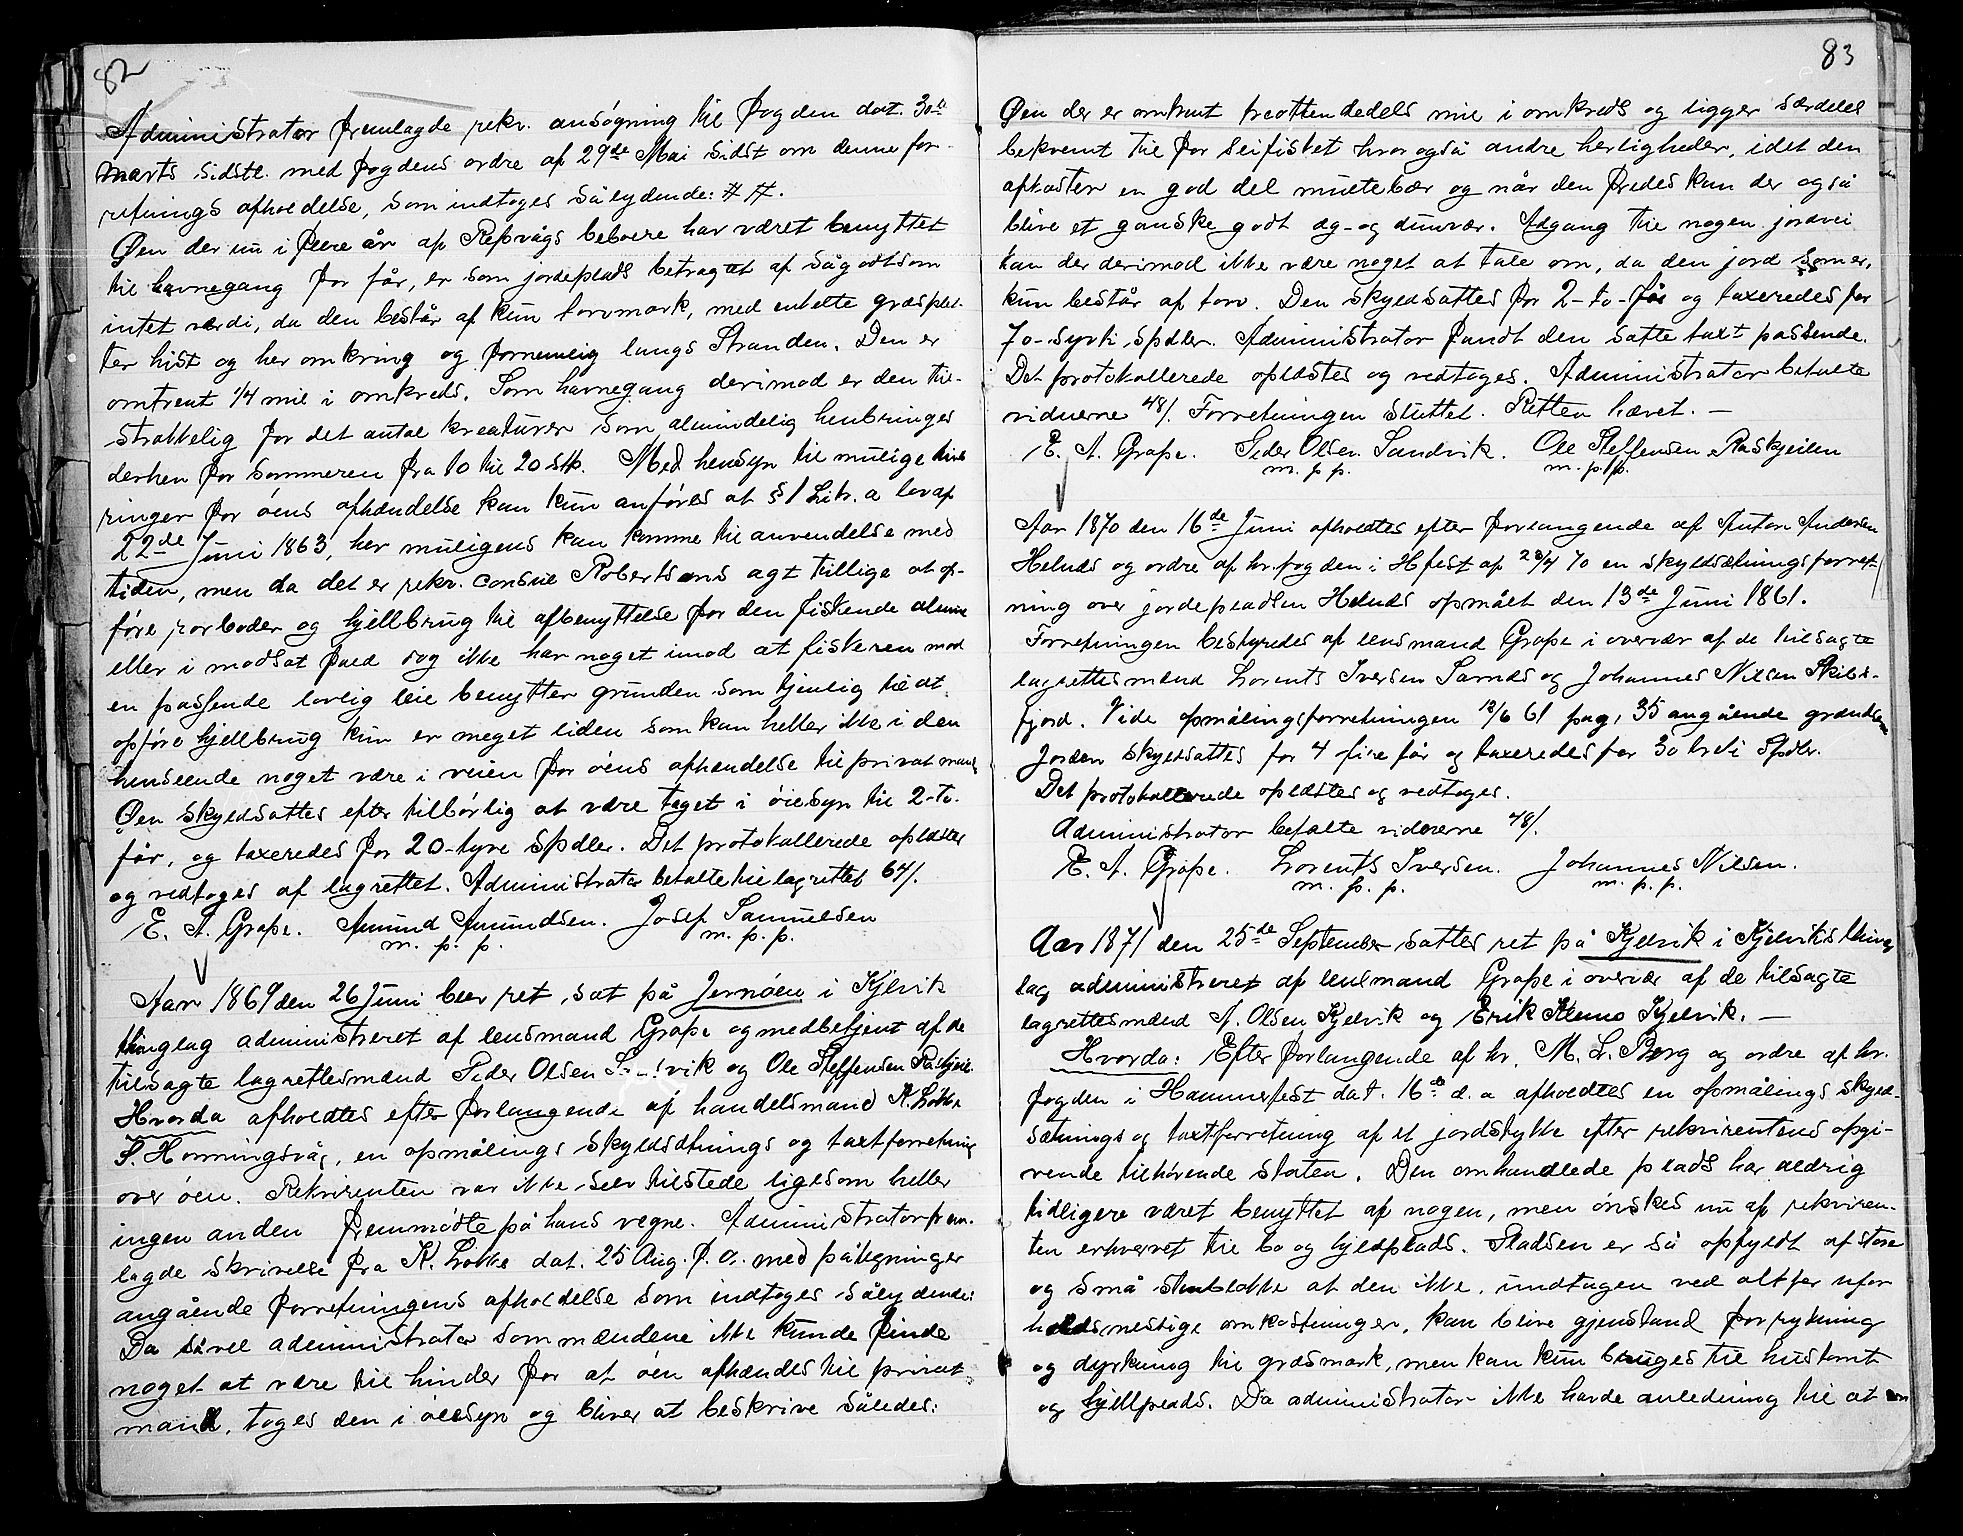 82
Administrator fremlagde rekv. ansøgning til fogden dat. 30te
marts sidstl. med fogdens ordre af 29de Mai sidst om denne for-
retnings afholdelse, som indtoges sålydende: # #.
Øen der nu i flere år af Refsvågs beboere har været benyttet
til havnegang for får, er som jordeplads betragtet af sågodtsom
intet værdi, da den består af kun torvmark, med enkelte græsplet-
ter hist og her omkring og fornemlig langs Stranden. Den er
omtrent 1/4 mil i omkreds. Som havnegang derimod er den til-
strækkelig for det antal kreaturer som almindelig henbringes
derhen for sommeren fra 10 til 20 stk. Med hensyn til mulige hind
ringer for øens afhændelse kan kun anføres at § 1 Litr. a lov af
22de Juni 1863, her muligens kan komme til anvendelse med
tiden, men da det er rekv. consul Robertsons agt tillige at op-
føre rorboder og hjellbrug til afbenyttelse for den fiskende almue
eller i modsat fald dog ikke har noget imod at fiskeren mod
en passende lovlig leie benytter grunden som tjenlig til dt.
opføre hjellbrug kun er meget liden som kan heller ikke i den
henseende noget være i veien for øens afhændelse til privat mand
Øen skyldsattes efter tilbørlig at være taget i øiesyn til 2-to-
får, og taxeredes for 20-tyve Spdler. Det protokollerede oplæstes
og vedtoges af lagrettet. Administrator betalte til lagrettet 64/.
E. A. Grape. Amund Amundsen. Josef Samuelsen
m. p. p. m. p. p.
Aar 1869 den 26 Juni blev ret sat på Jernøen i Kjelvik
thinglag administreret af lensmand Grape og medbetjent af de
tilsagte lagrettesmænd Peder Olsen Sandvik og Ole Steffensen Råskjeil.
Hvorda afholdtes efter forlangende af handelsmand K. Løkke
P. Honningsvåg, en opmålings skyldsætnings og taxtforretning
over øen. Rekvirenten var ikke selv tilstede ligesom heller
ingen anden fremmødte på hans vegne. Administrator frem-
lagde skrivelse fra K. Løkke dat. 25 Aug. f. a. med påtegninger
angående forretningens afholdelse som indtoges sålydende:
Da såvel administrator som mændene ikke kunde finde
noget at være til hinder for at øen afhændes til privat
mand, toges den i øiesyn og bliver at beskrive således:
83
Øen der er omtrent treottendedels mil i omkreds og ligger særdeles
bekvemt til for seifisket hvor også andre herligheder, idet den
afkaster en god del multebær og når den fredes kan der også
blive et ganske godt æg- og dunvær. Adgang til nogen jordvei
kan der derimod ikke være noget at tale om, da den jord som er,
kun består af torv. Den skyldsattes for 2-to-får og taxeredes for
70-sytti spdler. Administrator fandt den satte taxt passende.
Det protokollerede oplæstes og vedtoges. Administrator betalte
vidnerne 48/. Forretningen sluttet. Retten hævet. —
E. A. Grape. Peder Olsen Sandvik. Ole Steffensen Raskjeilen
m. p. p. m. p. p.
Aar 1870 den 16de Juni afholdtes efter forlangende af Anton Andersen
Helnes og ordre af hr. fogden i Hfest af 28/4 70 en skyldsætningsforret-
ning over jordepladsen Helnes opmålt den 13de Juni 1861.
Forretningen bestyredes af lensmand Grape i overvær af de tilsagte
lagrettesmænd Lorents Iversen Sarnes og Johannes Nilsen Skibs-
fjord. Vide opmålingsforretningen 13/6 61 pag. 35 angående grændsen
Jorden skyldsattes for 4 fire får og taxeredes for 30 treti Spdlr.
Det protokollerede oplæstes og vedtoges.
Administrator betalte vidnerne 48/.
E. A. Grape. Lorents Iversen. Johannes Nilsen.
m. p. p. m. p. p.
Aar 1871 den 25de September sattes ret på Kjelvik i Kjelviks thing
lag administreret af lensmand Grape i overvær af de tilsagte
lagrettesmænd A. Olsen Kjelvik og Erik Klemo Kjelvik. —
Hvorda: Efter forlangende af hr. M. L. Berg og ordre af hr.
fogden i Hammerfest dat. 16de d. a afholdtes en opmålings skyld-
sætnings og taxtforretning af et jordstykke efter rekvirentens opgi-
vende tilhørende staten. Den omhandlede plads har aldrig
tidligere været benyttet af nogen, men ønskes nu af rekviren-
ten erhvervet til bo og hjeldplads. Pladsen er så opfyldt af store
og små stenblokke at den ikke, undtagen ved altfor ufor
holdsmessige omkostninger, kan blive gjenstand for rykning
og dyrkning til græsmark, men kan kun bruges til hustomt
og hjellplads. Da administrator ikke havde anledning til at